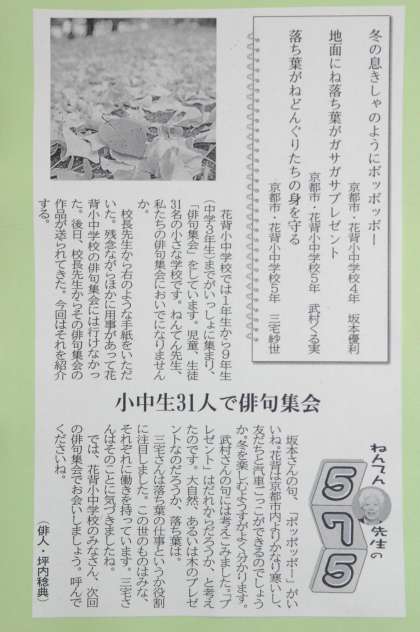 冬の息きしゃのようにボッボッボー
京都市・花背小中学校4年 坂本優利
地面にね落ち葉がガサガサプレゼント
京都市・花背小中学校5年 武村くる実
落ち葉がねどんぐりたちの身を守る
京都市・花背小中学校5年 三宅紗世
花背小中学校では1年生から9年生
(中学3年生)までがいっしょに集まり、
「俳句集会」をしています。児童、生徒
31名の小さな学校です。ねんてん先生、
私たちの俳句集会においでになりません
か。
校長先生から右のような手紙をいただ
いた。残念ながらほかに用事があって花
背小中学校の俳句集会には行けなかっ
た。後日、校長先生からその俳句集会の
作品が送られてきた。今回はそれを紹介
する。
小中生31人で俳句集会
ねんてん先生の
575
坂本さんの句、「ボッボッボー」がい
いね。花背は京都市内よりかなり寒いし、
友だちと汽車ごっこができるのでしょう
か。冬を楽しむようすがよく分かります。
武村さんの句には考えこみました。「プ
レゼント」はだれからだろうか、と考え
たのです。大自然、あるいは木のプレゼ
ントなのだろうか、落ち葉は。
三宅さんは落ち葉の仕事というか役割
に注目しました。この世のものはみな、
それぞれに働きを持っています。三宅さ
んはそのことに気づきましたね。
では、花背小中学校のみなさん、次回
の俳句集会でお会いしましょう。呼んで
くださいね。
(俳人・坪内稔典)